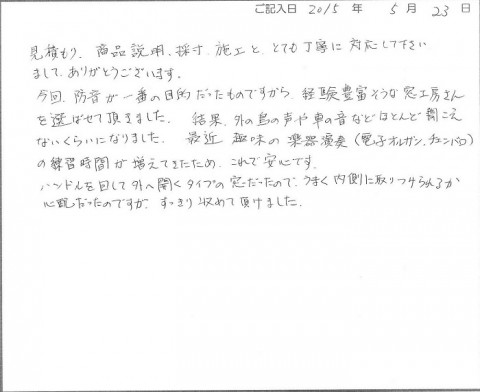 ご記入日 2015 年 5 月 23 日
見積もり、商品説明、採寸、施工と、とても丁寧に対応して下さい
まして、ありがとうございます。
今回、防音が一番の目的だったものですから、経験豊富そうな窓工房さん
を選ばせて頂きました。結果、外の鳥の声や車の音などほとんど聞こえ
ないくらいになりました。最近 趣味の楽器演奏(電子オルガン、チェンバロ)
の練習時間が増えてきたため、これで安心です。
ハンドルを回して外へ開くタイプの窓だったので、うまく内側に取りつけられるか
心配だったのですが、すっきり収めて頂けました。